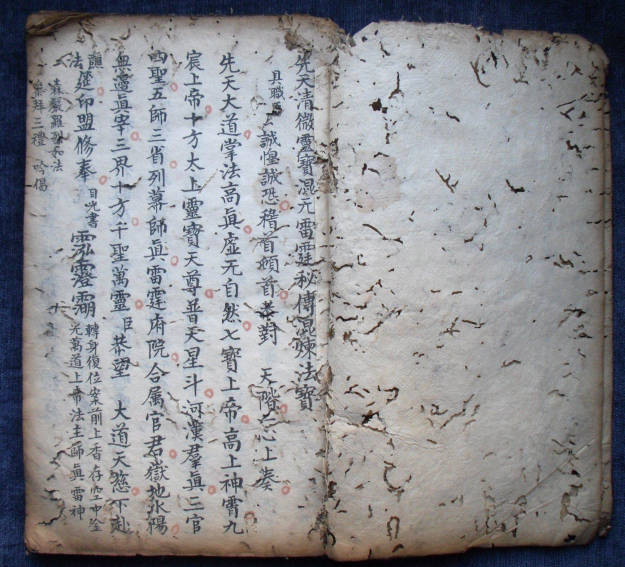 先天清微靈寶混元雷霆秘傳混煉法寶
具職臣厶誠惶誠恐稽首頓首恭對 天階一心上奏
先天大道掌法高真虛无自然七寶上帝高上神霄九
宸上帝十方太上靈寶天尊普天星斗河漢羣真三官
四聖五師三省列幕師真雷霆府院合属官君嶽地水陽
無邊真宰三界十方千聖萬靈臣恭望 大道天慈下赴
法筵印盟修奉 目光書
轉身復位案前上香存空中金
光萬道上帝法主師真雷神
森嚴羅列如法
三禮 吟偈